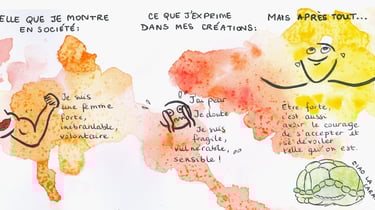 ELLE QUE JE MONTRE
EN SOCIÉTÉ:
Je suis
une femme
forte,
inébranlable,
volontaire.
CE QUE J'EXPRIME
DANS MES CRÉATIONS:
J'ai peur
Je doute
Je suis
fragile,
vulnérable,
sensible !
MAIS APRÈS TOUT...
Être forte,
c'est aussi
avoir le courage
de s'accepter et
se dévoiler
telle qu'on est.